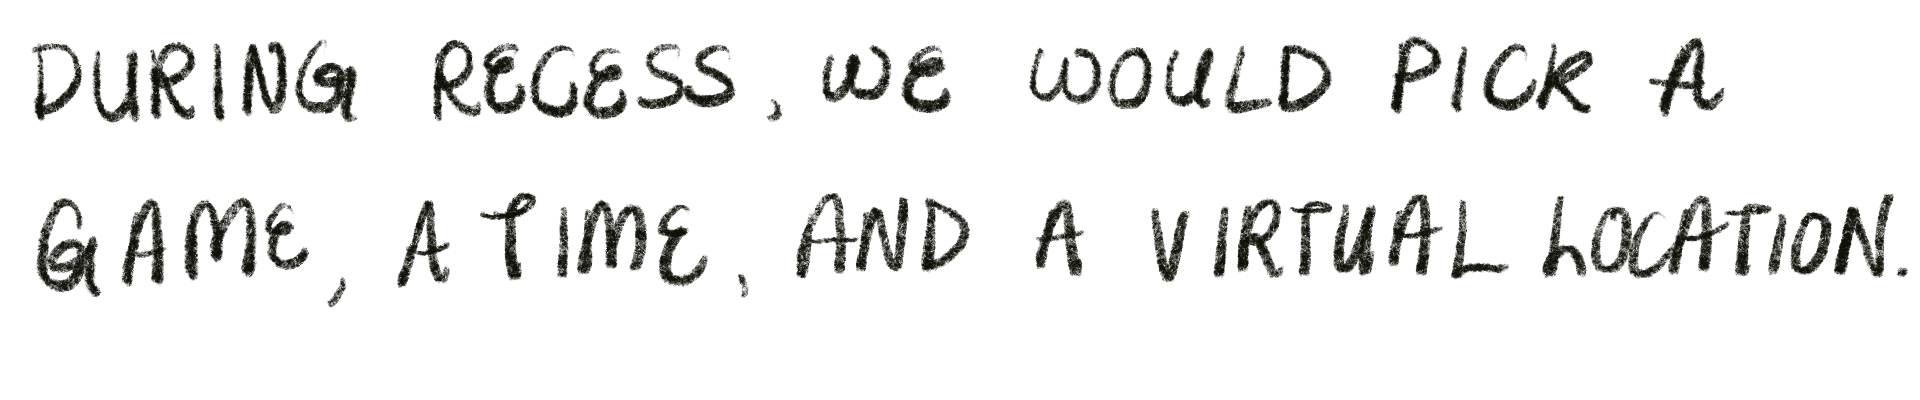 DURING RECESS, WE WOULD PICK A
GAME, A TIME, AND A VIRTUAL LOCATION.